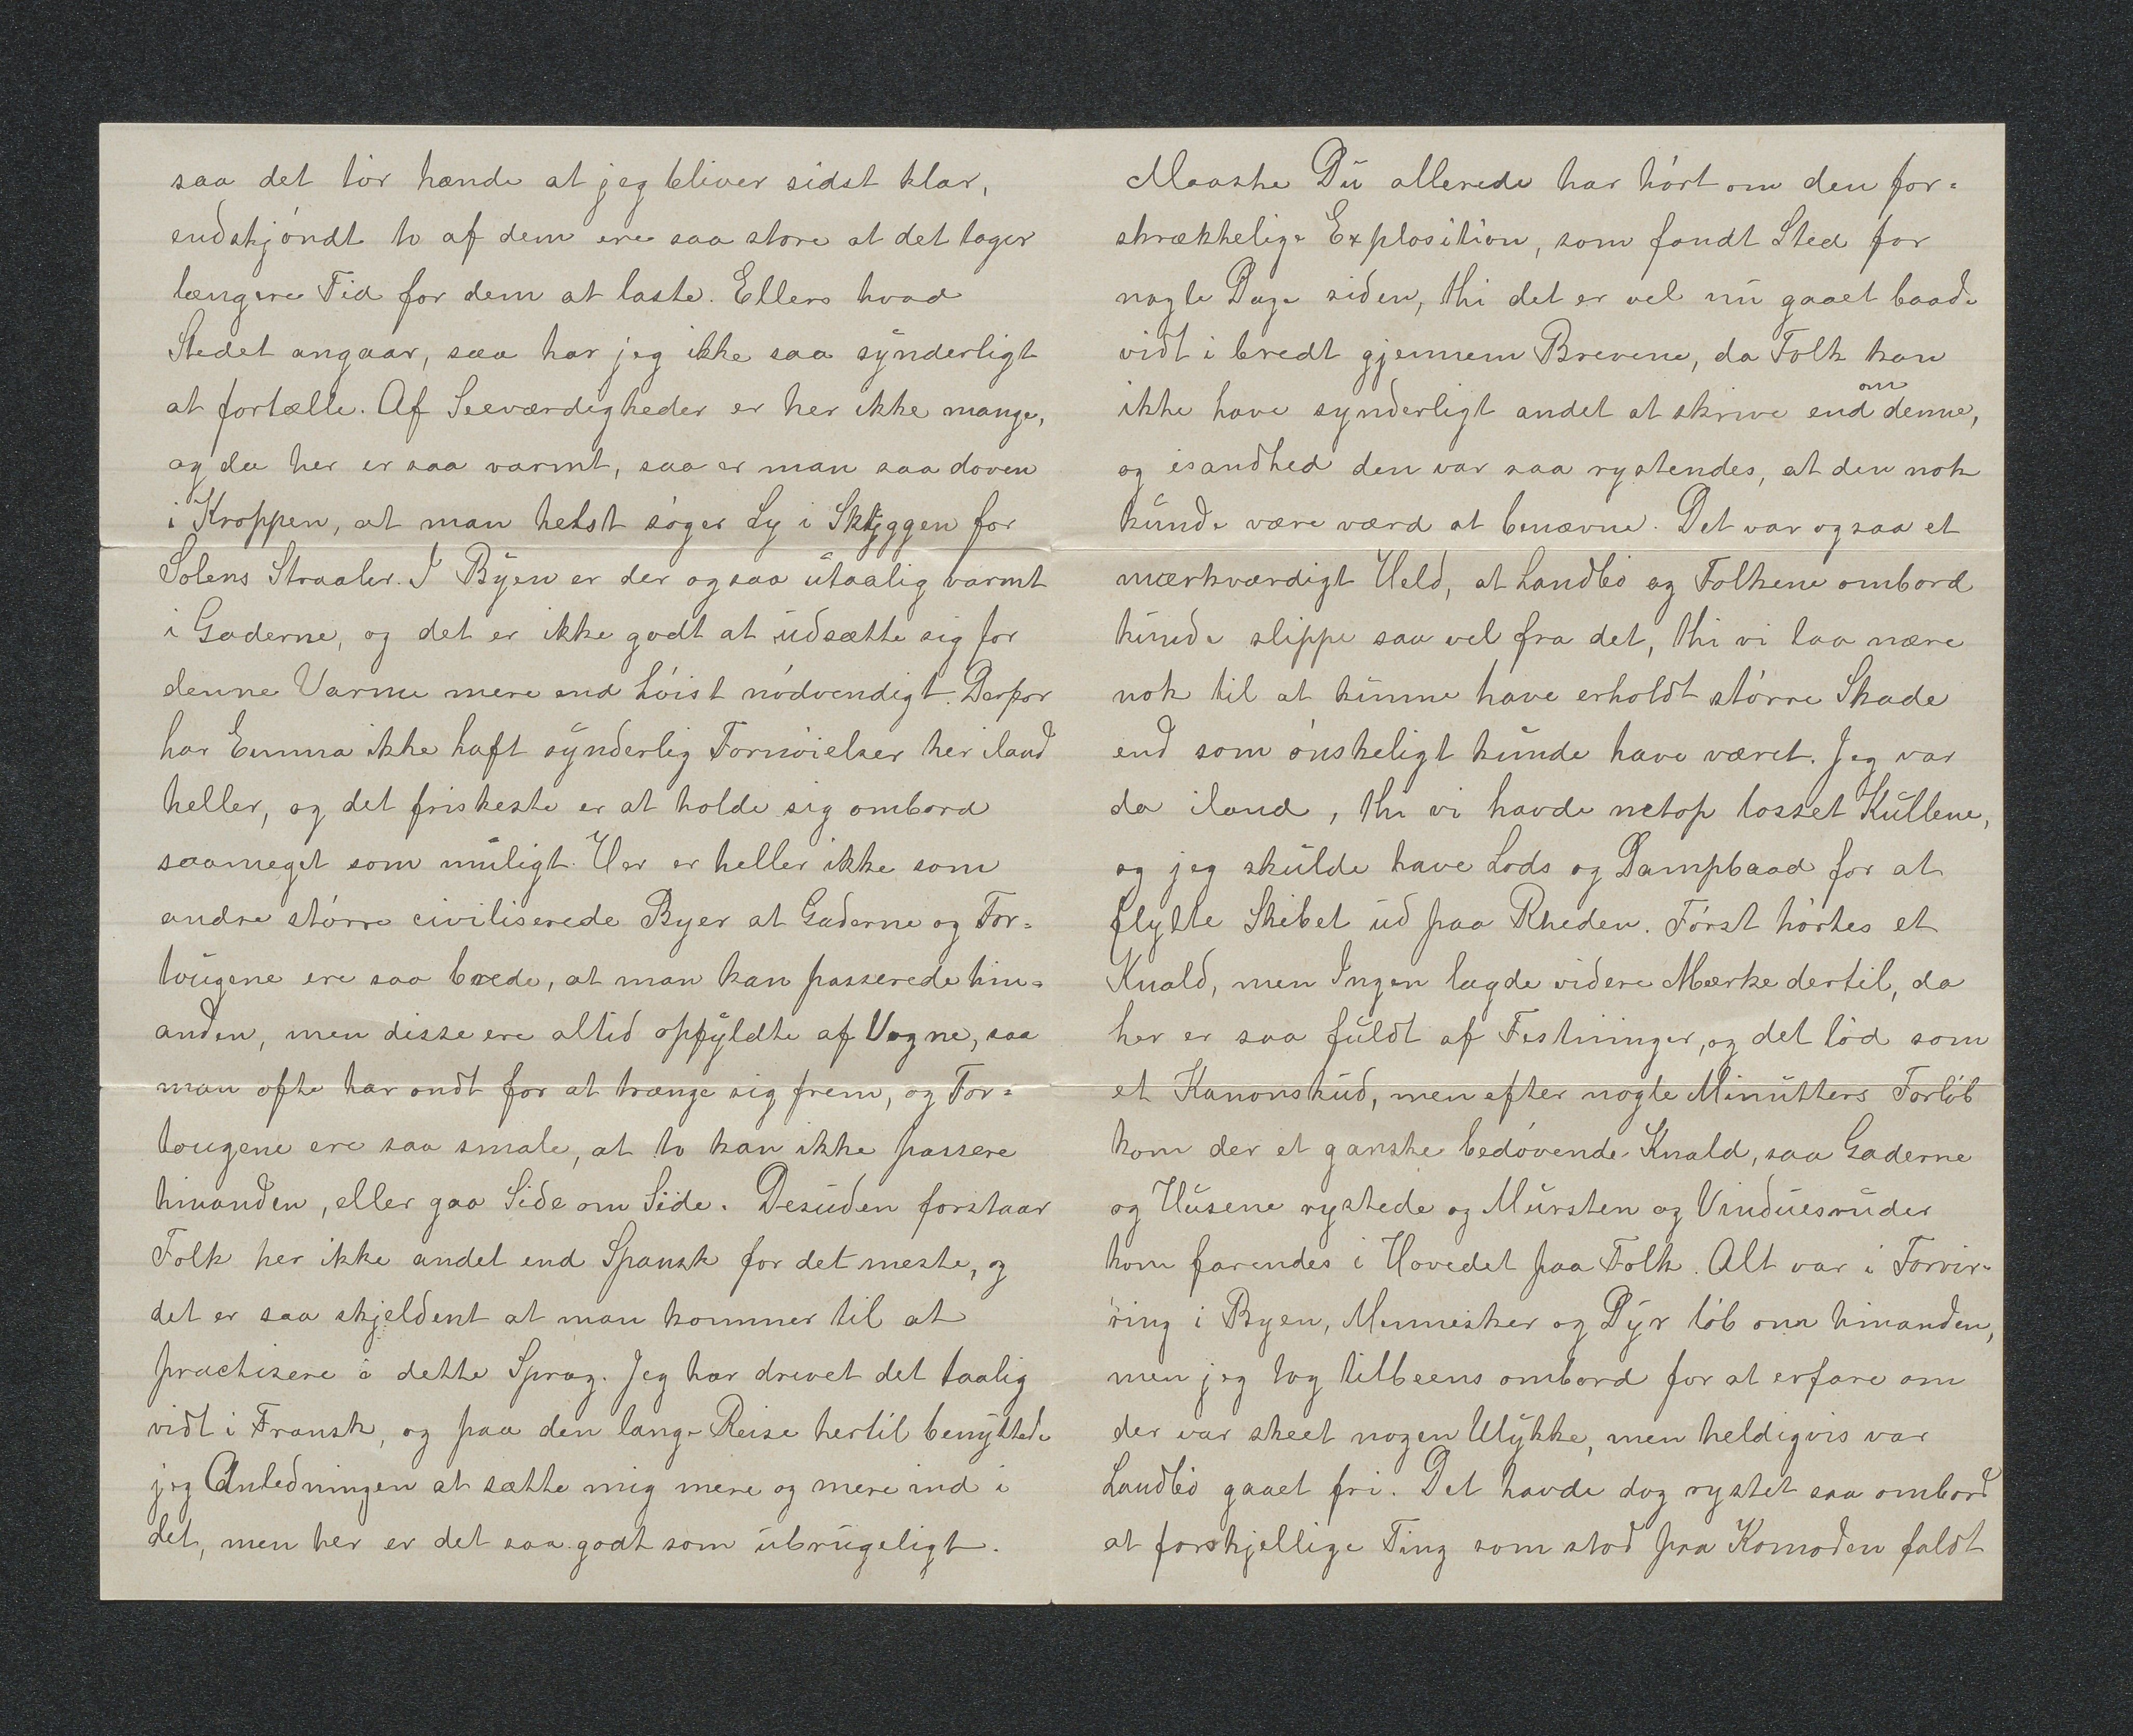 saa det tör hænde at jeg bliver sidst klar,
endskjöndt to af dem ere saa store at det tager
længere Tid for dem at laste. Ellers hvad
Stedet angaar, saa har jeg ikke saa synderligt
at fortælle. Af Seeværdigheder er her ikke mange,
og da her er saa varmt, saa er man saa doven
i Kroppen, at man helst söger Ly i Skyggen for
Solens Straaler. I Byen er der ogsaa utaalig varmt
i Gaderne, og det er ikke godt at udsætte sig for
denne Varme mere end höist nödvendigt. Derfor
har Emma ikke haft synderlig Fornöielser her iland
heller, og det friskeste er at holde sig ombord
saameget som muligt. Her er heller ikke som
andre större civiliserede Byer at Gaderne og For=
tougene ere saa brede, at man kan passerede hin=
anden, men disse ere altid opfyldte af Vogne, saa
man ofte har ondt for at trænge sig frem, og For=
tougene ere saa smale, at to kan ikke passere
hinanden, eller gaa Side om Side. Desuden forstaar
Folk her ikke andet end Spansk for det meste, og
det er saa skjeldent at man kommer til at
practisere i dette Sprog. Jeg har drevet det taalig
vidt i Fransk, og paa den lange Reise hertil benyttede
jeg Anledningen at sætte mig mere og mere ind i
det, men her er det saa godt som ubrugeligt.
Maaske Du allerede har hört om den for=
skrækkelige Explosition, som fandt Sted for
nogle Dage siden, thi det er vel nu gaaet baade
vidt i bredt gjennem Brevene, da Folk kan
ikke have synderligt andet at skrive end om denne,
og isandhed den var saa rystendes, at den nok
kunde være værd at benævne. Det var ogsaa et
mærkværdigt Held, at Landbo og Folkene ombord
kunde slippe saa vel fra det, thi vi laa nære
nok til at kunne have erholdt större Skade
end som önskeligt kunde have været. Jeg var
da iland, thi vi havde netop losset Kullene,
og jeg skulde have Lods og Dampbaad for at
flytte Skibet ud paa Rheden. Först hörtes et
Knald, men Ingen lagde videre Mærke dertil, da
her er saa fuldt af Festninger, og det löd som
et Kanonskud, men efter nogle Minutters Forlöb
kom der et ganske bedövende Knald, saa Gaderne
og Husene rystede og Mursten og Vinduesruder
kom farendes i Hovedet paa Folk. Alt var i Forvir=
ring i Byen, Mennesker og Dyr löb om hinanden,
men jeg tog tilbeens ombord for at erfare om
der var skeet nogen Ulykke, men heldigvis var
Landbo gaaet fri. Det havde dog rystet saa ombord
at forskjellige Ting som stod paa Komoden faldt